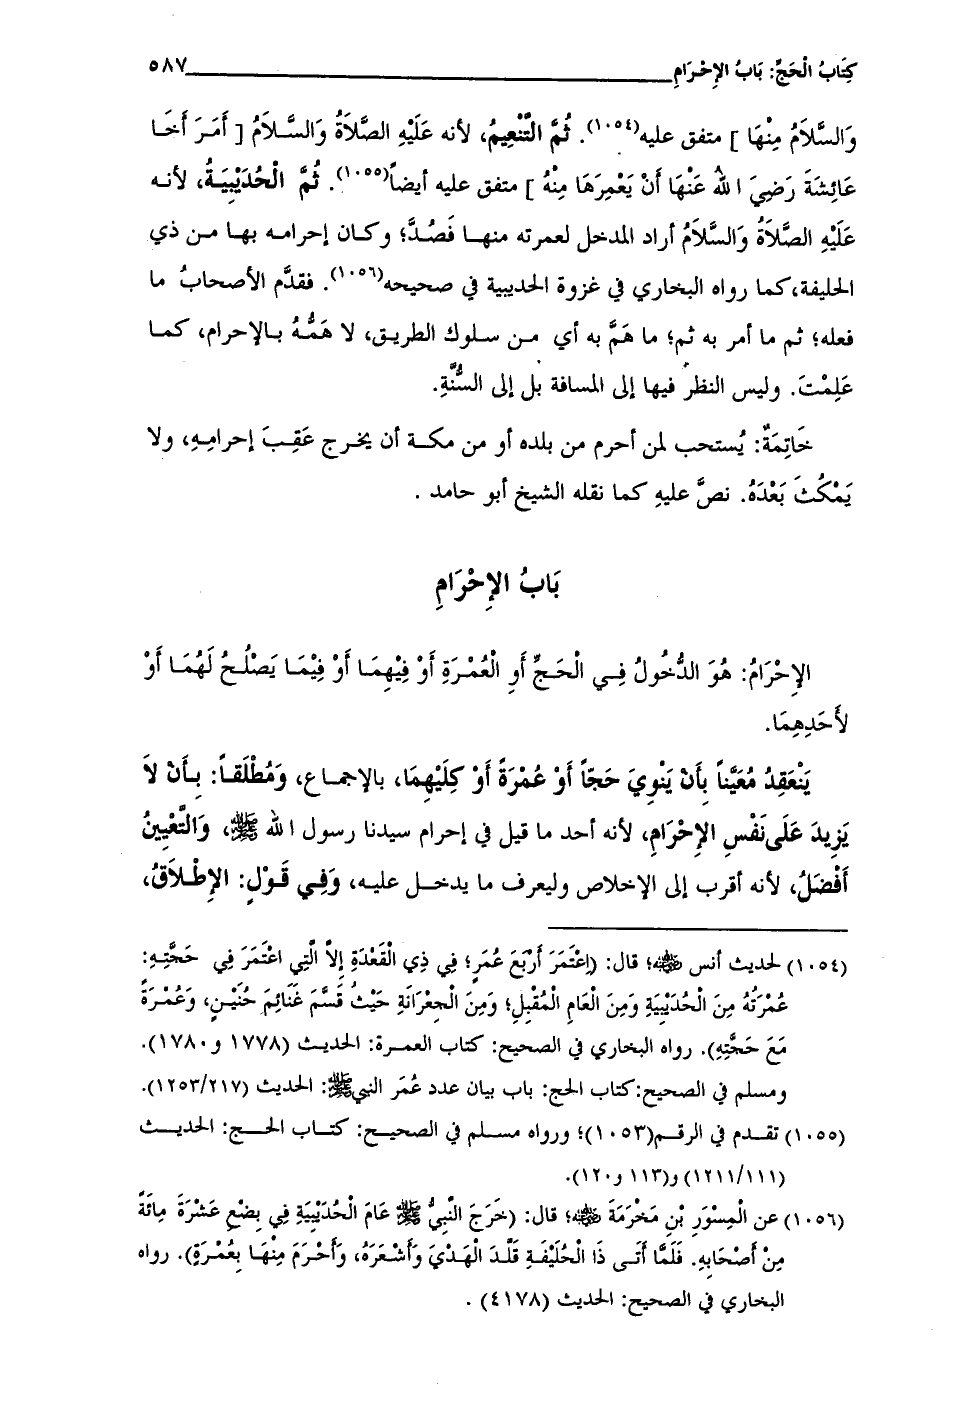 كِتَابُ الْحَجِّ: بَابُ الإِحْرَامِ ٥٨٧
وَالسَّلاَمُ مِنْهَا ] متفق عليه(١٠٥٤). ثُمَّ التَّنْعِيمُ، لأنه عَلَيْهِ الصَّلاَةُ وَالسَّلاَمُ [ أَمَرَ أَخَا
عَائِشَةَ رَضِيَ اللهُ عَنْهَا أَنْ يَعْمِرَهَا مِنْهُ ] متفق عليه أيضاً(١٠٥٥). ثُمَّ الْحُدَيْبِيَةُ، لأنه
عَلَيْهِ الصَّلاَةُ وَالسَّلاَمُ أراد المدخل لعمرته منها فَصُدَّ؛ وكان إحرامه بها من ذي
الحليفة،كما رواه البخاري في غزوة الحديبية في صحيحه(١٠٥٦). فقدَّم الأصحابُ ما
فعله؛ ثم ما أمر به ثم؛ ما هَمَّ به أي من سلوك الطريق، لا هَمُّهُ بالإحرام، كما
عَلِمْتَ. وليس النظر فيها إلى المسافة بل إلى السُّنَّةِ.
خَاتِمَةٌ: يُستحب لمن أحرم من بلده أو من مكة أن يخرج عَقِبَ إحرامِهِ، ولا
يَمْكُثَ بَعْدَهُ. نصَّ عليهِ كما نقله الشيخ أبو حامد .
بَابُ الإِحْرَامِ
الإِحْرَامُ: هُوَ الدُّخُولُ فِي الْحَجِّ أَوِ الْعُمْرَةِ أَوْ فِيْهِمَا أَوْ فِيْمَا يَصْلُحُ لَهُمَا أَوْ
لأَحَدِهِمَا.
يَنْعَقِدُ مُعَيَّناً بِأَنْ يَنْوِيَ حَجّاً أَوْ عُمْرَةً أَوْ كِلَيْهِمَا، بالإجماع، وَمُطْلَقاً: بِأَنْ لاَ
يَزِيدَ عَلَى نَفْسِ الإِحْرَامِ، لأنه أحد ما قيل في إحرام سيدنا رسول الله ﷺ، وَالتَّعْيِينُ
أَفْضَلُ، لأنه أقرب إلى الإخلاص وليعرف ما يدخل عليه، وَفِي قَوْلٍ: الإِطْلاَقُ،
(١٠٥٤) لحديث أنس ﷺ؛ قال: (اعْتَمَرَ أَرْبَعَ عُمَرٍ؛ فِي ذِي الْقَعْدَةِ إِلاَّ الَّتِي اعْتَمَرَ فِي حَجَّتِهِ:
عُمْرَتُهُ مِنَ الْحُدَيْبِيَةِ وَمِنَ الْعَامِ الْمُقْبِلِ؛ وَمِنَ الْجِعْرَانَةِ حَيْثُ قَسَّمَ غَنَائِمَ حُنَيْنٍ، وَعُمْرَةً
مَعَ حَجَّتِهِ). رواه البخاري في الصحيح: كتاب العمرة: الحديث (١٧٧٨ و١٧٨٠).
ومسلم في الصحيح:كتاب الحج: باب بيان عدد عُمَر النبيﷺ: الحديث (١٢٥٣/٢١٧).
(١٠٥٥) تقدم في الرقم(١٠٥٣)؛ ورواه مسلم في الصحيح: كتاب الحج: الحديث
(١٢١١/١١١) و(١١٣ و١٢٠).
(١٠٥٦) عن الْمِسْوَرِ بْنِ مَخْرَمَةَ ﷺ؛ قال: (خَرَجَ النَّبِيُّ ﷺ عَامَ الْحُدَيْبِيَةِ فِي بِضْعِ عَشْرَةَ مِائَةً
مِنْ أَصْحَابِهِ. فَلَمَّا أَتَى ذَا الْحُلَيْفَةِ قَلَّدَ الْهَدْيَ وَأَشْعَرَهُ، وَأَحْرَمَ مِنْهَا بِعُمْرَةٍ). رواه
البخاري في الصحيح: الحديث (٤١٧٨) .